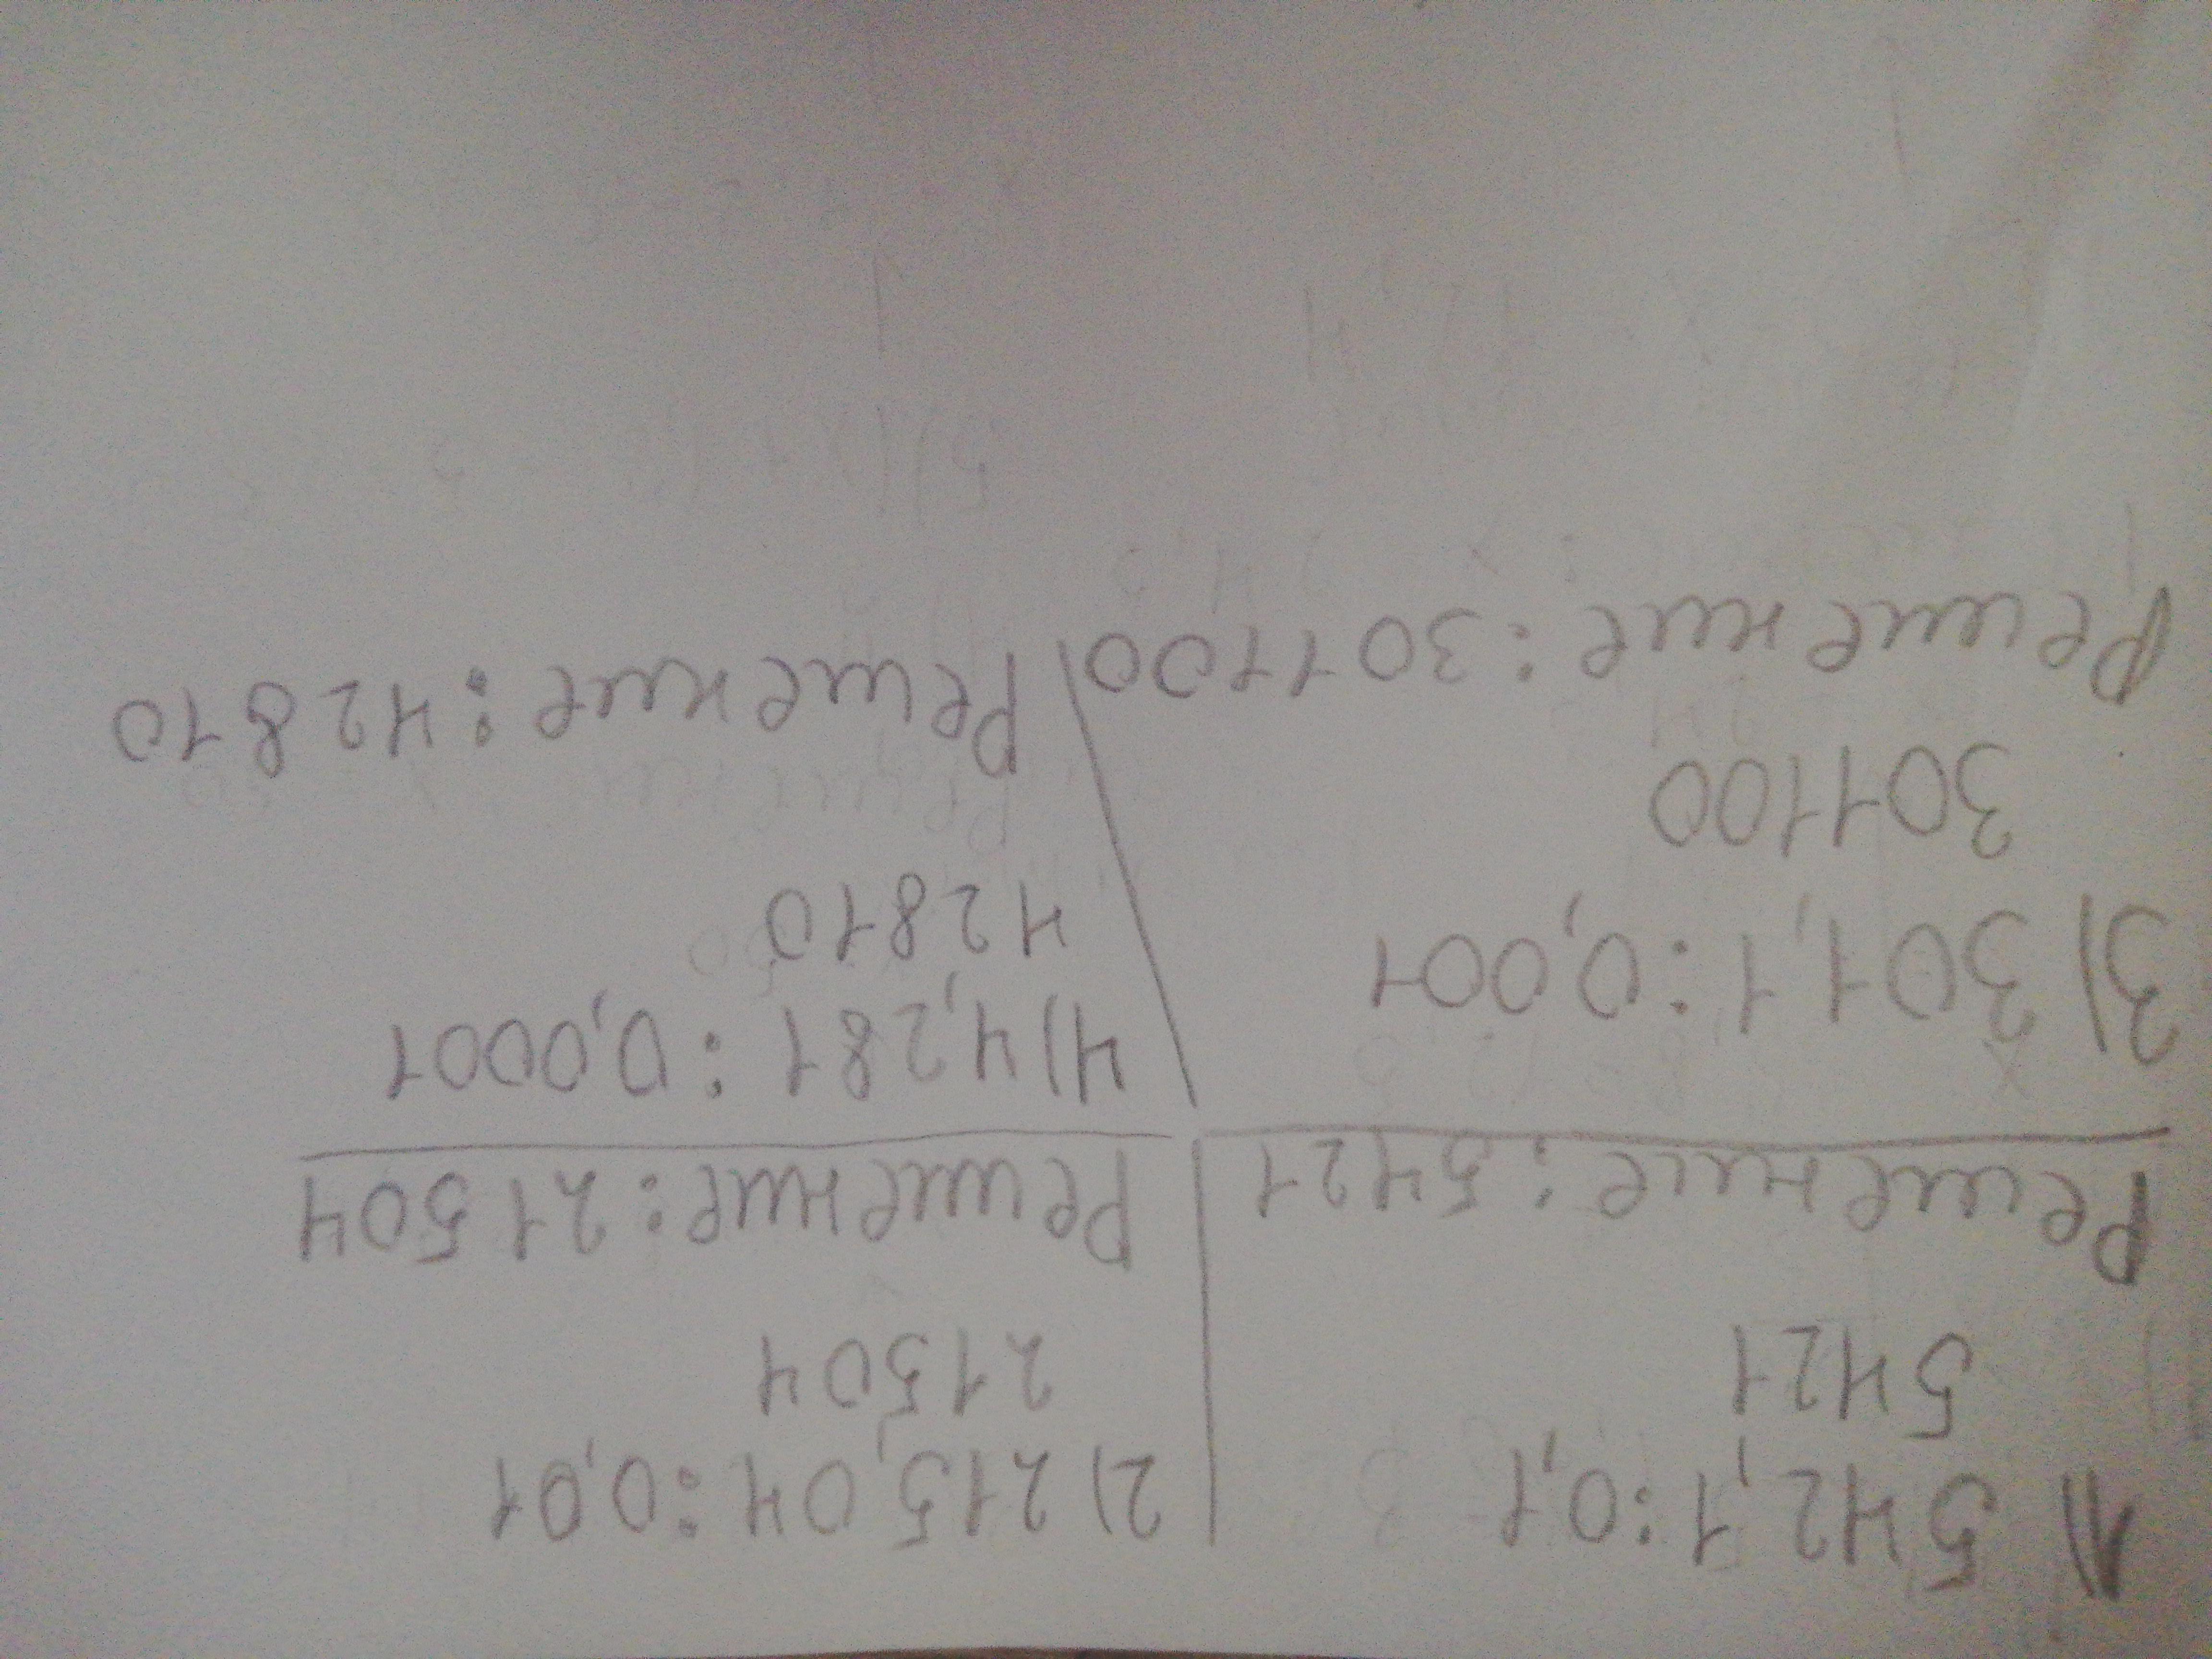 1) 542,1:0,1
5421
Решение: 5421
2) 215,04:0,01
21504
Решение: 21504
3) 301,1:0,001
301100
Решение: 301100
4) 4,281:0,0001
42810
Решение: 42810